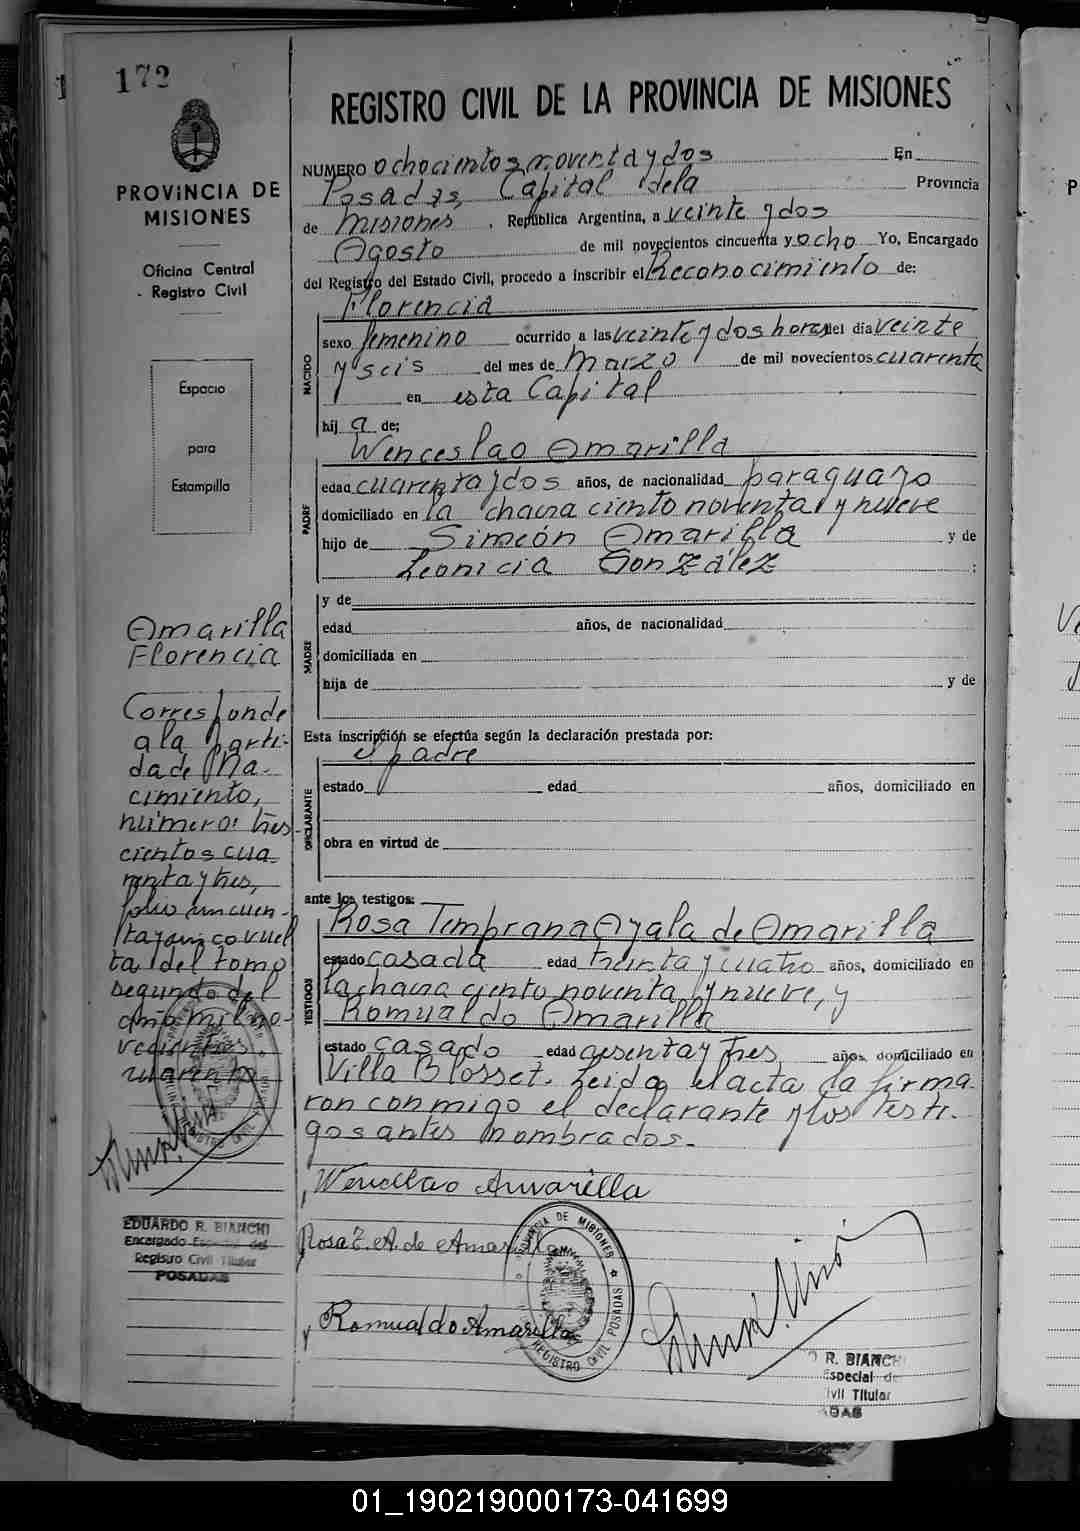 172
PROVINCIA DE
MISIONES
Oficina Central
Registro Civil
Espacio
para
Estampilla
Amarilla
Florencia
Corresponde
a la parti-
da de Na-
cimiento,
número: tres-
cientos cua-
renta y tres,
folio cincuen-
ta y cinco vuel
ta del tomo
segundo del
año mil no-
vecientos
cuarenta
EDUARDO R. BIANCHI
Encargado Especial del
Registro Civil Titular
POSADAS
REGISTRO CIVIL DE LA PROVINCIA DE MISIONES
NUMERO ochocientos noventa y dos En
Posadas, Capital de la Provincia
de Misiones, República Argentina, a veinte y dos
Agosto de mil novecientos cincuenta y ocho Yo, Encargado
del Registro del Estado Civil, procedo a inscribir el Reconocimiento de:
Florencia
NACIDO
sexo femenino ocurrido a las veinte y dos horas del día veinte
y seis del mes de Marzo de mil novecientos cuarenta
en esta Capital
hij a de;
Wenceslao Amarilla
PADRE
edad cuarenta y dos años, de nacionalidad paraguayo
domiciliado en la chacra ciento noventa y nueve
hijo de Simeón Amarilla y de
Leonicia González ;
MADRE
y de
edad años, de nacionalidad
domiciliada en
hija de y de
Esta inscripción se efectúa según la declaración prestada por:
el padre
DECLARANTE
estado edad años, domiciliado en
obra en virtud de
ante los testigos:
Rosa Temprana Ayala de Amarilla
TESTIGOS
estado casada edad treinta y cuatro años, domiciliado en
la chacra ciento noventa y nueve, y
Romualdo Amarilla
estado casado edad sesenta y tres años, domiciliado en
Villa Blosset. Leida el acta la firma-
ron conmigo el declarante y los testi-
gos antes nombrados.-
Wenceslao Amarilla
Rosa T. A. de Amarilla
PROVINCIA DE MISIONES
REGISTRO CIVIL POSADAS
Romualdo Amarilla
O R. BIANCHI
Especial de
ivil Titular
ADAS
01_190219000173-041699